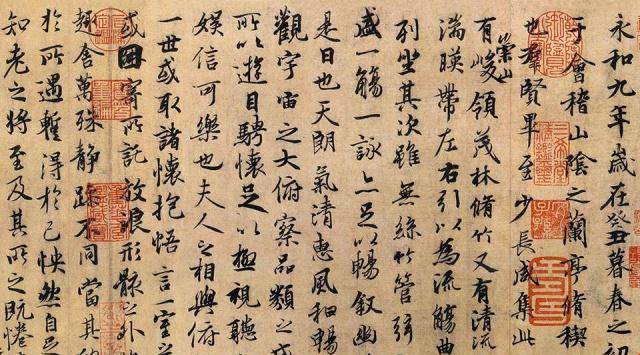 永和九年歲在癸丑暮春之初
于會稽山陰之蘭亭脩禊
也羣賢畢至少長咸集此
有崇山峻領茂林脩竹又有清流
湍暎帶左右引以為流觴曲
列坐其次雖無絲竹管弦
盛一觴一詠亦足以暢敘幽
是日也天朗氣清惠風和暢
觀宇宙之大俯察品類之
所以遊目騁懷足以極視聽
娛信可樂也夫人之相與俯
一世或取諸懷抱悟言一室之
或因寄所託放浪形骸之外
趣舍萬殊靜躁不同當其
於所遇暫得於己怏然自
知老之將至及其所之既惓